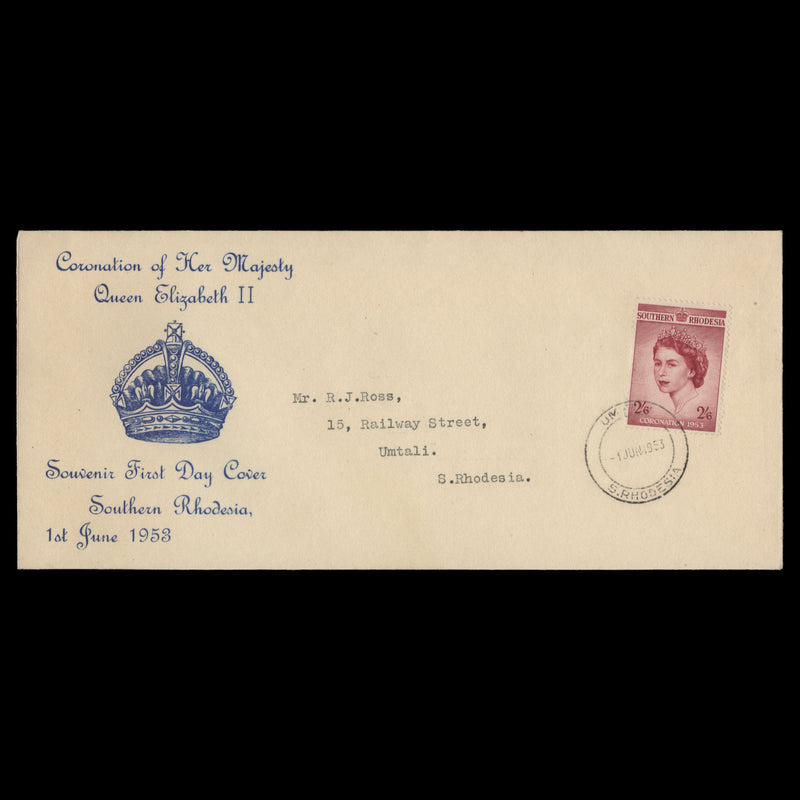 Coronation of Her Majesty
Queen Elizabeth II
Souvenir First Day Cover
Southern Rhodesia,
1st June 1953
Mr. R.J.Ross,
15, Railway Street,
Umtali.
S.Rhodesia.
SOUTHERN RHODESIA
2/6 2/6
CORONATION 1953
-1 JUN 1953
S.RHODESIA